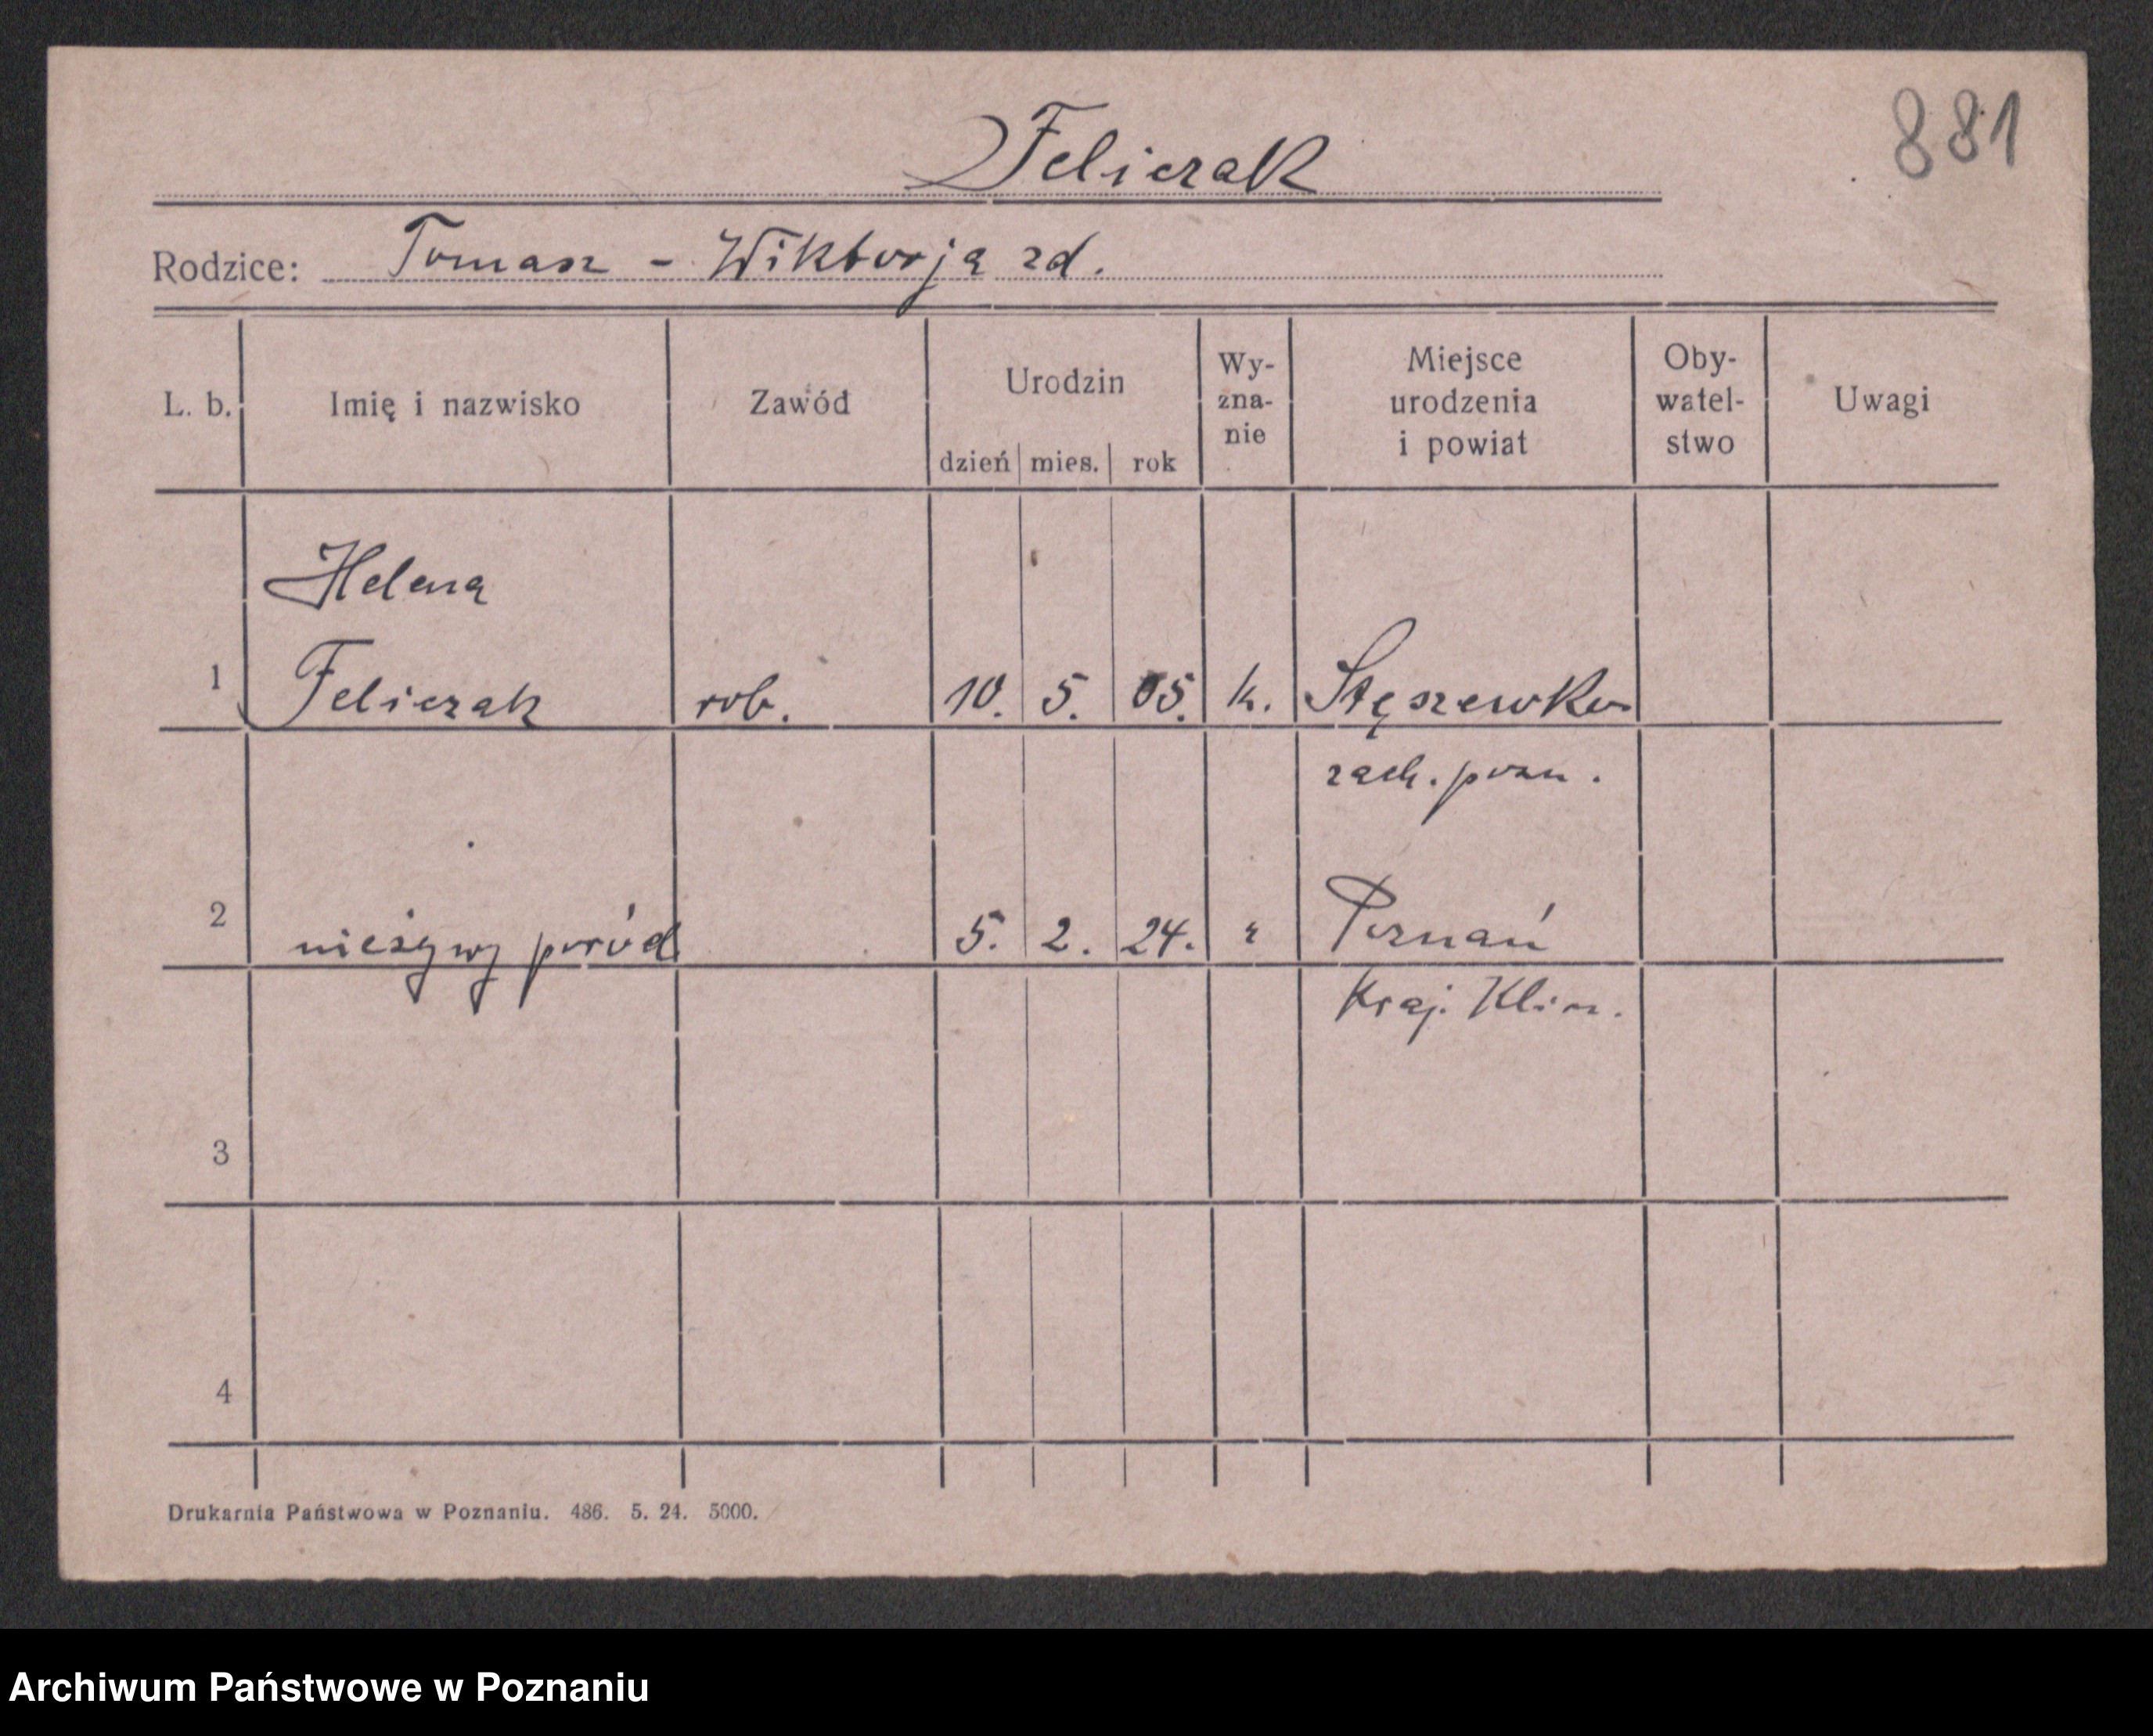 881
Feliczak
Rodzice: Tomasz - Wiktorja zd.
L. b. Imię i nazwisko Zawód Urodzin dzień mies. rok Wy-zna-nie Miejsce urodzenia i powiat Oby-watel-stwo Uwagi
Helena
1 Feliczak rob. 10. 5. 05. k. Stęszewko
zach. pozn.
2 nieżywy poród 5. 2. 24. " Poznań
Kraj. Klin.
3
4
Drukarnia Państwowa w Poznaniu. 486. 5. 24. 5000.
Archiwum Państwowe w Poznaniu